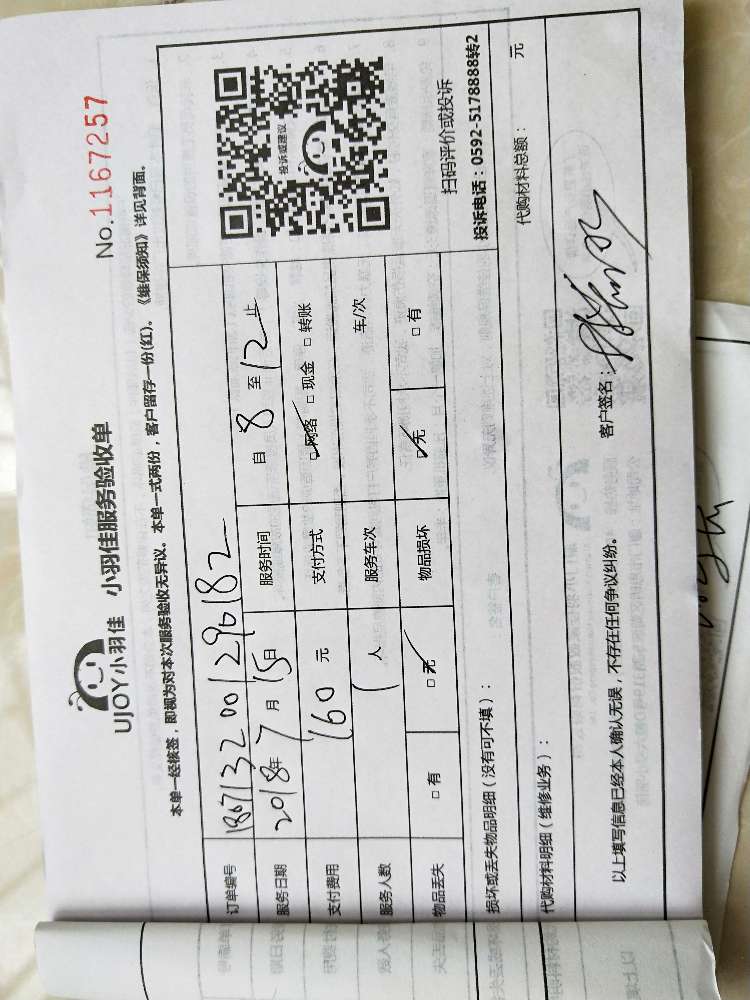 UJOY小羽佳 小羽佳服务验收单
No.1167257
本单一经核签，即视为对本次服务验收无异议。本单一式两份，客户留存一份(红)。《维保须知》详见背面。
订单编号 1807132001290182
服务日期 2018年7月15日 服务时间 自 8 至 12 止
支付费用 160 元 支付方式 □网络 □现金 □转账
服务人数 1 人 服务车次 车/次
物品丢失 □有 □无 物品损坏 □无 □有
投诉或建议
扫码评价或投诉
投诉电话：0592-5178888转2
损坏或丢失物品明细（没有可不填）：
代购材料明细（维修业务）： 代购材料总额： 元
以上填写信息已经本人确认无误，不存在任何争议纠纷。 客户签名：